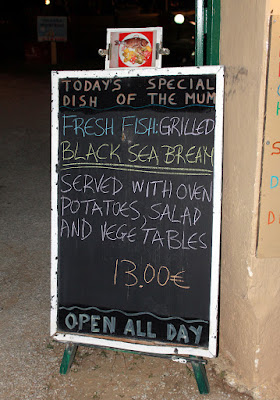 TODAYS SPECIAL
DISH OF THE MUM
FRESH FISH:GRILLED
BLACK SEA BREAM
SERVED WITH OVEN
POTATOES, SALAD
AND VEGETABLES
13.00€
OPEN ALL DAY